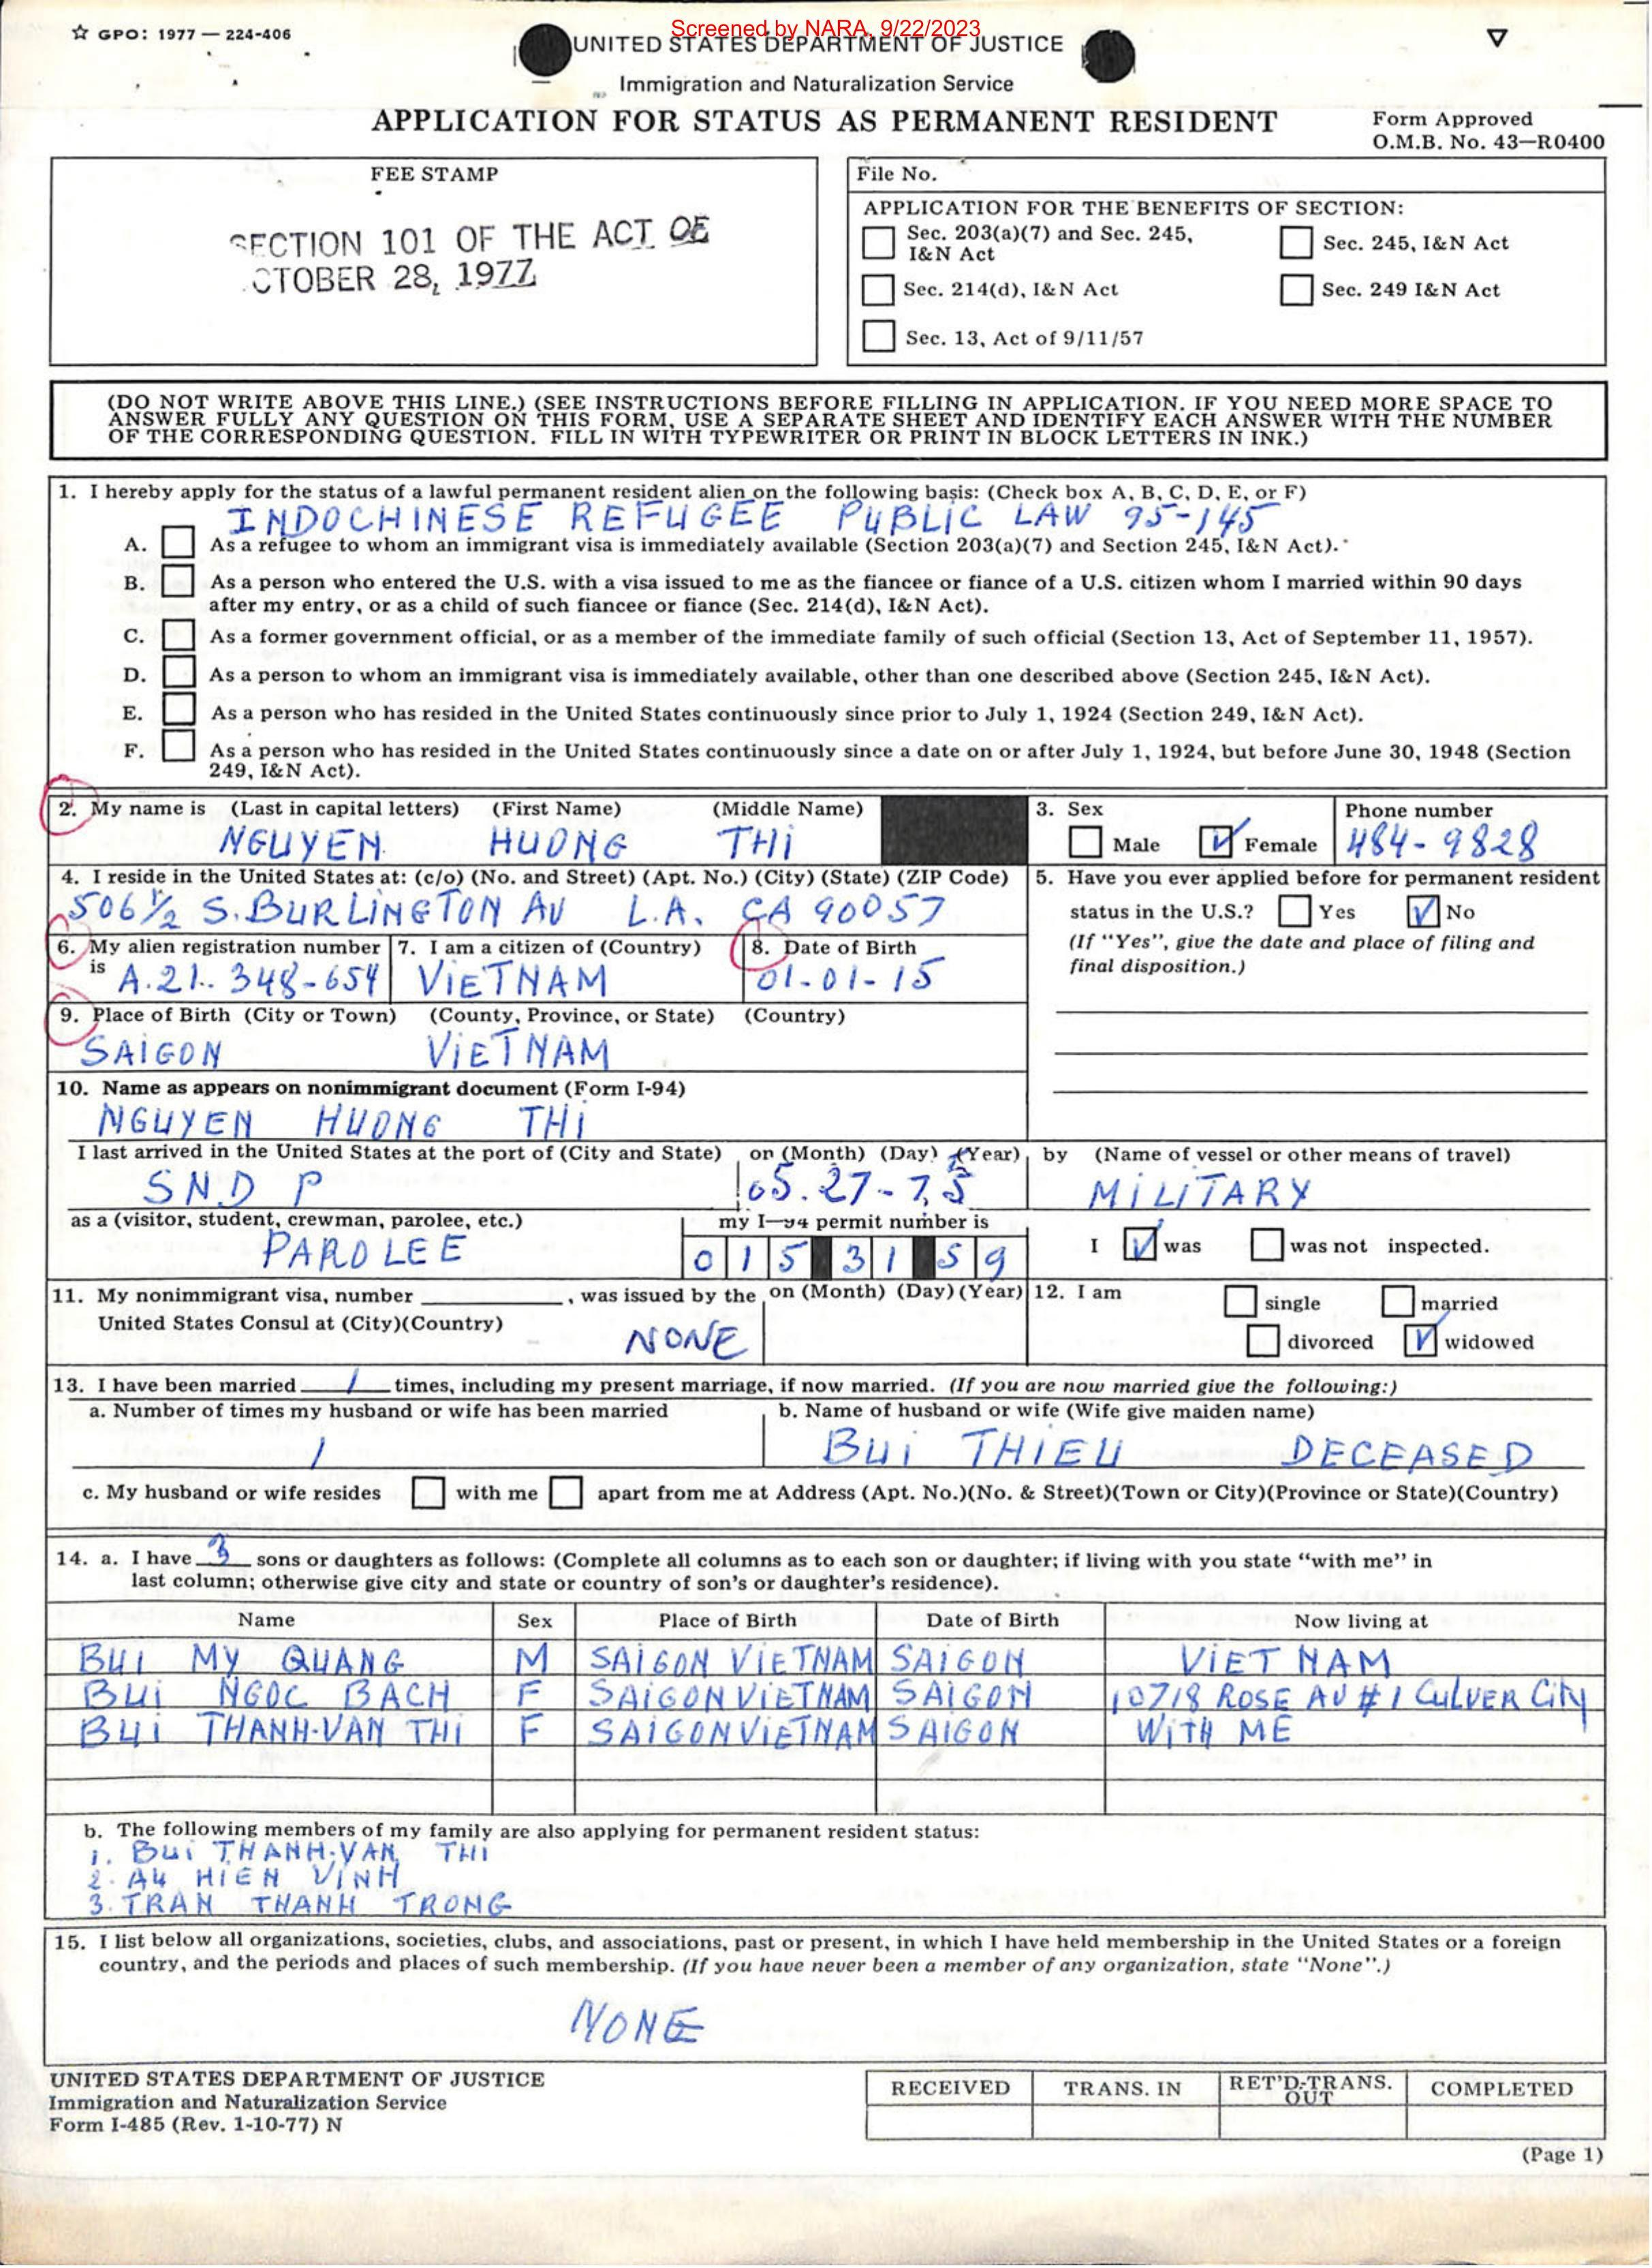 Screened by NARA, 9/22/2023
☆ GPO: 1977 — 224-406
UNITED STATES DEPARTMENT OF JUSTICE
Immigration and Naturalization Service
APPLICATION FOR STATUS AS PERMANENT RESIDENT
Form Approved
O.M.B. No. 43—R0400
FEE STAMP
SECTION 101 OF THE ACT OF
CTOBER 28, 1977
File No.
APPLICATION FOR THE BENEFITS OF SECTION:
Sec. 203(a)(7) and Sec. 245, I&N Act
Sec. 245, I&N Act
Sec. 214(d), I&N Act
Sec. 249 I&N Act
Sec. 13, Act of 9/11/57
(DO NOT WRITE ABOVE THIS LINE.) (SEE INSTRUCTIONS BEFORE FILLING IN APPLICATION. IF YOU NEED MORE SPACE TO
ANSWER FULLY ANY QUESTION ON THIS FORM, USE A SEPARATE SHEET AND IDENTIFY EACH ANSWER WITH THE NUMBER
OF THE CORRESPONDING QUESTION. FILL IN WITH TYPEWRITER OR PRINT IN BLOCK LETTERS IN INK.)
1. I hereby apply for the status of a lawful permanent resident alien on the following basis: (Check box A, B, C, D, E, or F)
INDOCHINESE REFUGEE PUBLIC LAW 95-145
A. As a refugee to whom an immigrant visa is immediately available (Section 203(a)(7) and Section 245, I&N Act).
B. As a person who entered the U.S. with a visa issued to me as the fiancee or fiance of a U.S. citizen whom I married within 90 days
after my entry, or as a child of such fiancee or fiance (Sec. 214(d), I&N Act).
C. As a former government official, or as a member of the immediate family of such official (Section 13, Act of September 11, 1957).
D. As a person to whom an immigrant visa is immediately available, other than one described above (Section 245, I&N Act).
E. As a person who has resided in the United States continuously since prior to July 1, 1924 (Section 249, I&N Act).
F. As a person who has resided in the United States continuously since a date on or after July 1, 1924, but before June 30, 1948 (Section
249, I&N Act).
2. My name is (Last in capital letters) (First Name) (Middle Name)
NGUYEN HUONG THI
3. Sex
Male Female
Phone number
484-9828
4. I reside in the United States at: (c/o) (No. and Street) (Apt. No.) (City) (State) (ZIP Code)
506 1/2 S. BURLINGTON AV L.A. CA 90057
5. Have you ever applied before for permanent resident
status in the U.S.? Yes No
(If "Yes", give the date and place of filing and
final disposition.)
6. My alien registration number
is A.21. 348-654
7. I am a citizen of (Country)
VIETNAM
8. Date of Birth
01-01-15
9. Place of Birth (City or Town) (County, Province, or State) (Country)
SAIGON VIETNAM
10. Name as appears on nonimmigrant document (Form I-94)
NGUYEN HUONG THI
I last arrived in the United States at the port of (City and State)
SND P
on (Month) (Day) (Year)
05.27-75
by (Name of vessel or other means of travel)
MILITARY
as a (visitor, student, crewman, parolee, etc.)
PAROLEE
my I—94 permit number is
015 31 59
I was was not inspected.
11. My nonimmigrant visa, number , was issued by the
United States Consul at (City)(Country)
NONE
on (Month) (Day) (Year)
12. I am single married
divorced widowed
13. I have been married 1 times, including my present marriage, if now married. (If you are now married give the following:)
a. Number of times my husband or wife has been married
1
b. Name of husband or wife (Wife give maiden name)
BUI THIEU DECEASED
c. My husband or wife resides with me apart from me at Address (Apt. No.)(No. & Street)(Town or City)(Province or State)(Country)
14. a. I have 3 sons or daughters as follows: (Complete all columns as to each son or daughter; if living with you state "with me" in
last column; otherwise give city and state or country of son's or daughter's residence).
Name Sex Place of Birth Date of Birth Now living at
BUI MY QUANG M SAIGON VIETNAM SAIGON VIET NAM
BUI NGOC BACH F SAIGON VIETNAM SAIGON 10718 ROSE AV #1 CULVER CITY
BUI THANH-VAN THI F SAIGON VIETNAM SAIGON WITH ME
b. The following members of my family are also applying for permanent resident status:
1. BUI THANH-VAN THI
2. AU HIEN VINH
3. TRAN THANH TRONG
15. I list below all organizations, societies, clubs, and associations, past or present, in which I have held membership in the United States or a foreign
country, and the periods and places of such membership. (If you have never been a member of any organization, state "None".)
NONE
UNITED STATES DEPARTMENT OF JUSTICE
Immigration and Naturalization Service
Form I-485 (Rev. 1-10-77) N
RECEIVED TRANS. IN RET'D-TRANS. OUT COMPLETED
(Page 1)